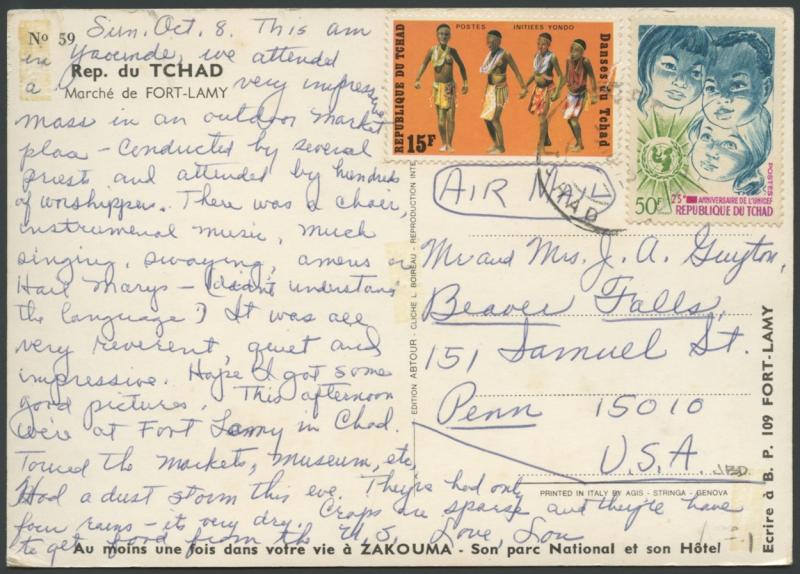 Nº 59
Rep. du TCHAD
Marché de FORT-LAMY
Sun. Oct. 8. This am
in Yaounde, we attended
a very impressive
mass in an outdoor market
place - conducted by several
priest and attended by hundreds
of worshippers. There was a choir,
instrumental music, much
singing, swaying, amens or
Hail Marys - (didn't understand
the language.) It was all
very reverent, quiet and
impressive. Hope I got some
good pictures. This afternoon
we're at Fort Lamy in Chad.
Toured the markets, museum, etc.
Had a dust storm this eve. They've had only
four rains - its very dry. Crops are sparse and they're have
to get food from the U.S. Love, Lou
Au moins une fois dans votre vie à ZAKOUMA - Son parc National et son Hôtel
EDITION ABTOUR - CLICHE L. BOIREAU - REPRODUCTION INTE
REPUBLIQUE DU TCHAD
POSTES INITIEES YONDO
Danses du Tchad
15F
50F
25e ANNIVERSAIRE DE L'UNICEF
REPUBLIQUE DU TCHAD
POSTES
TCHAD
AIR MAIL
Mr and Mrs. J. A. Guyton,
Beaver Falls,
151 Samuel St.
Penn 15010
U.S.A.
JBD
PRINTED IN ITALY BY AGIS - STRINGA - GENOVA
Ecrire à B. P. 109 FORT-LAMY